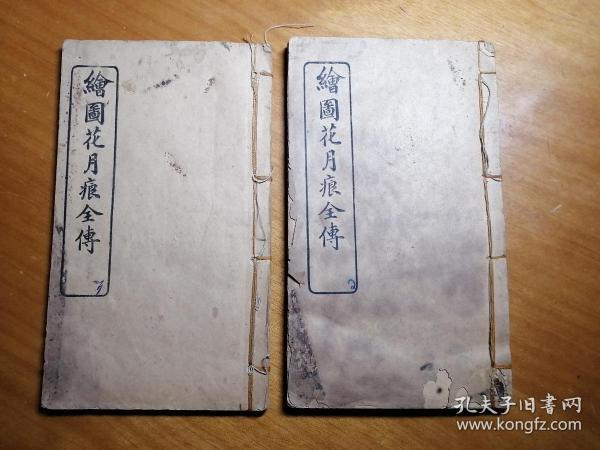 繪圖花月痕全傳
繪圖花月痕全傳
2
孔夫子旧書网
www.kongfz.com